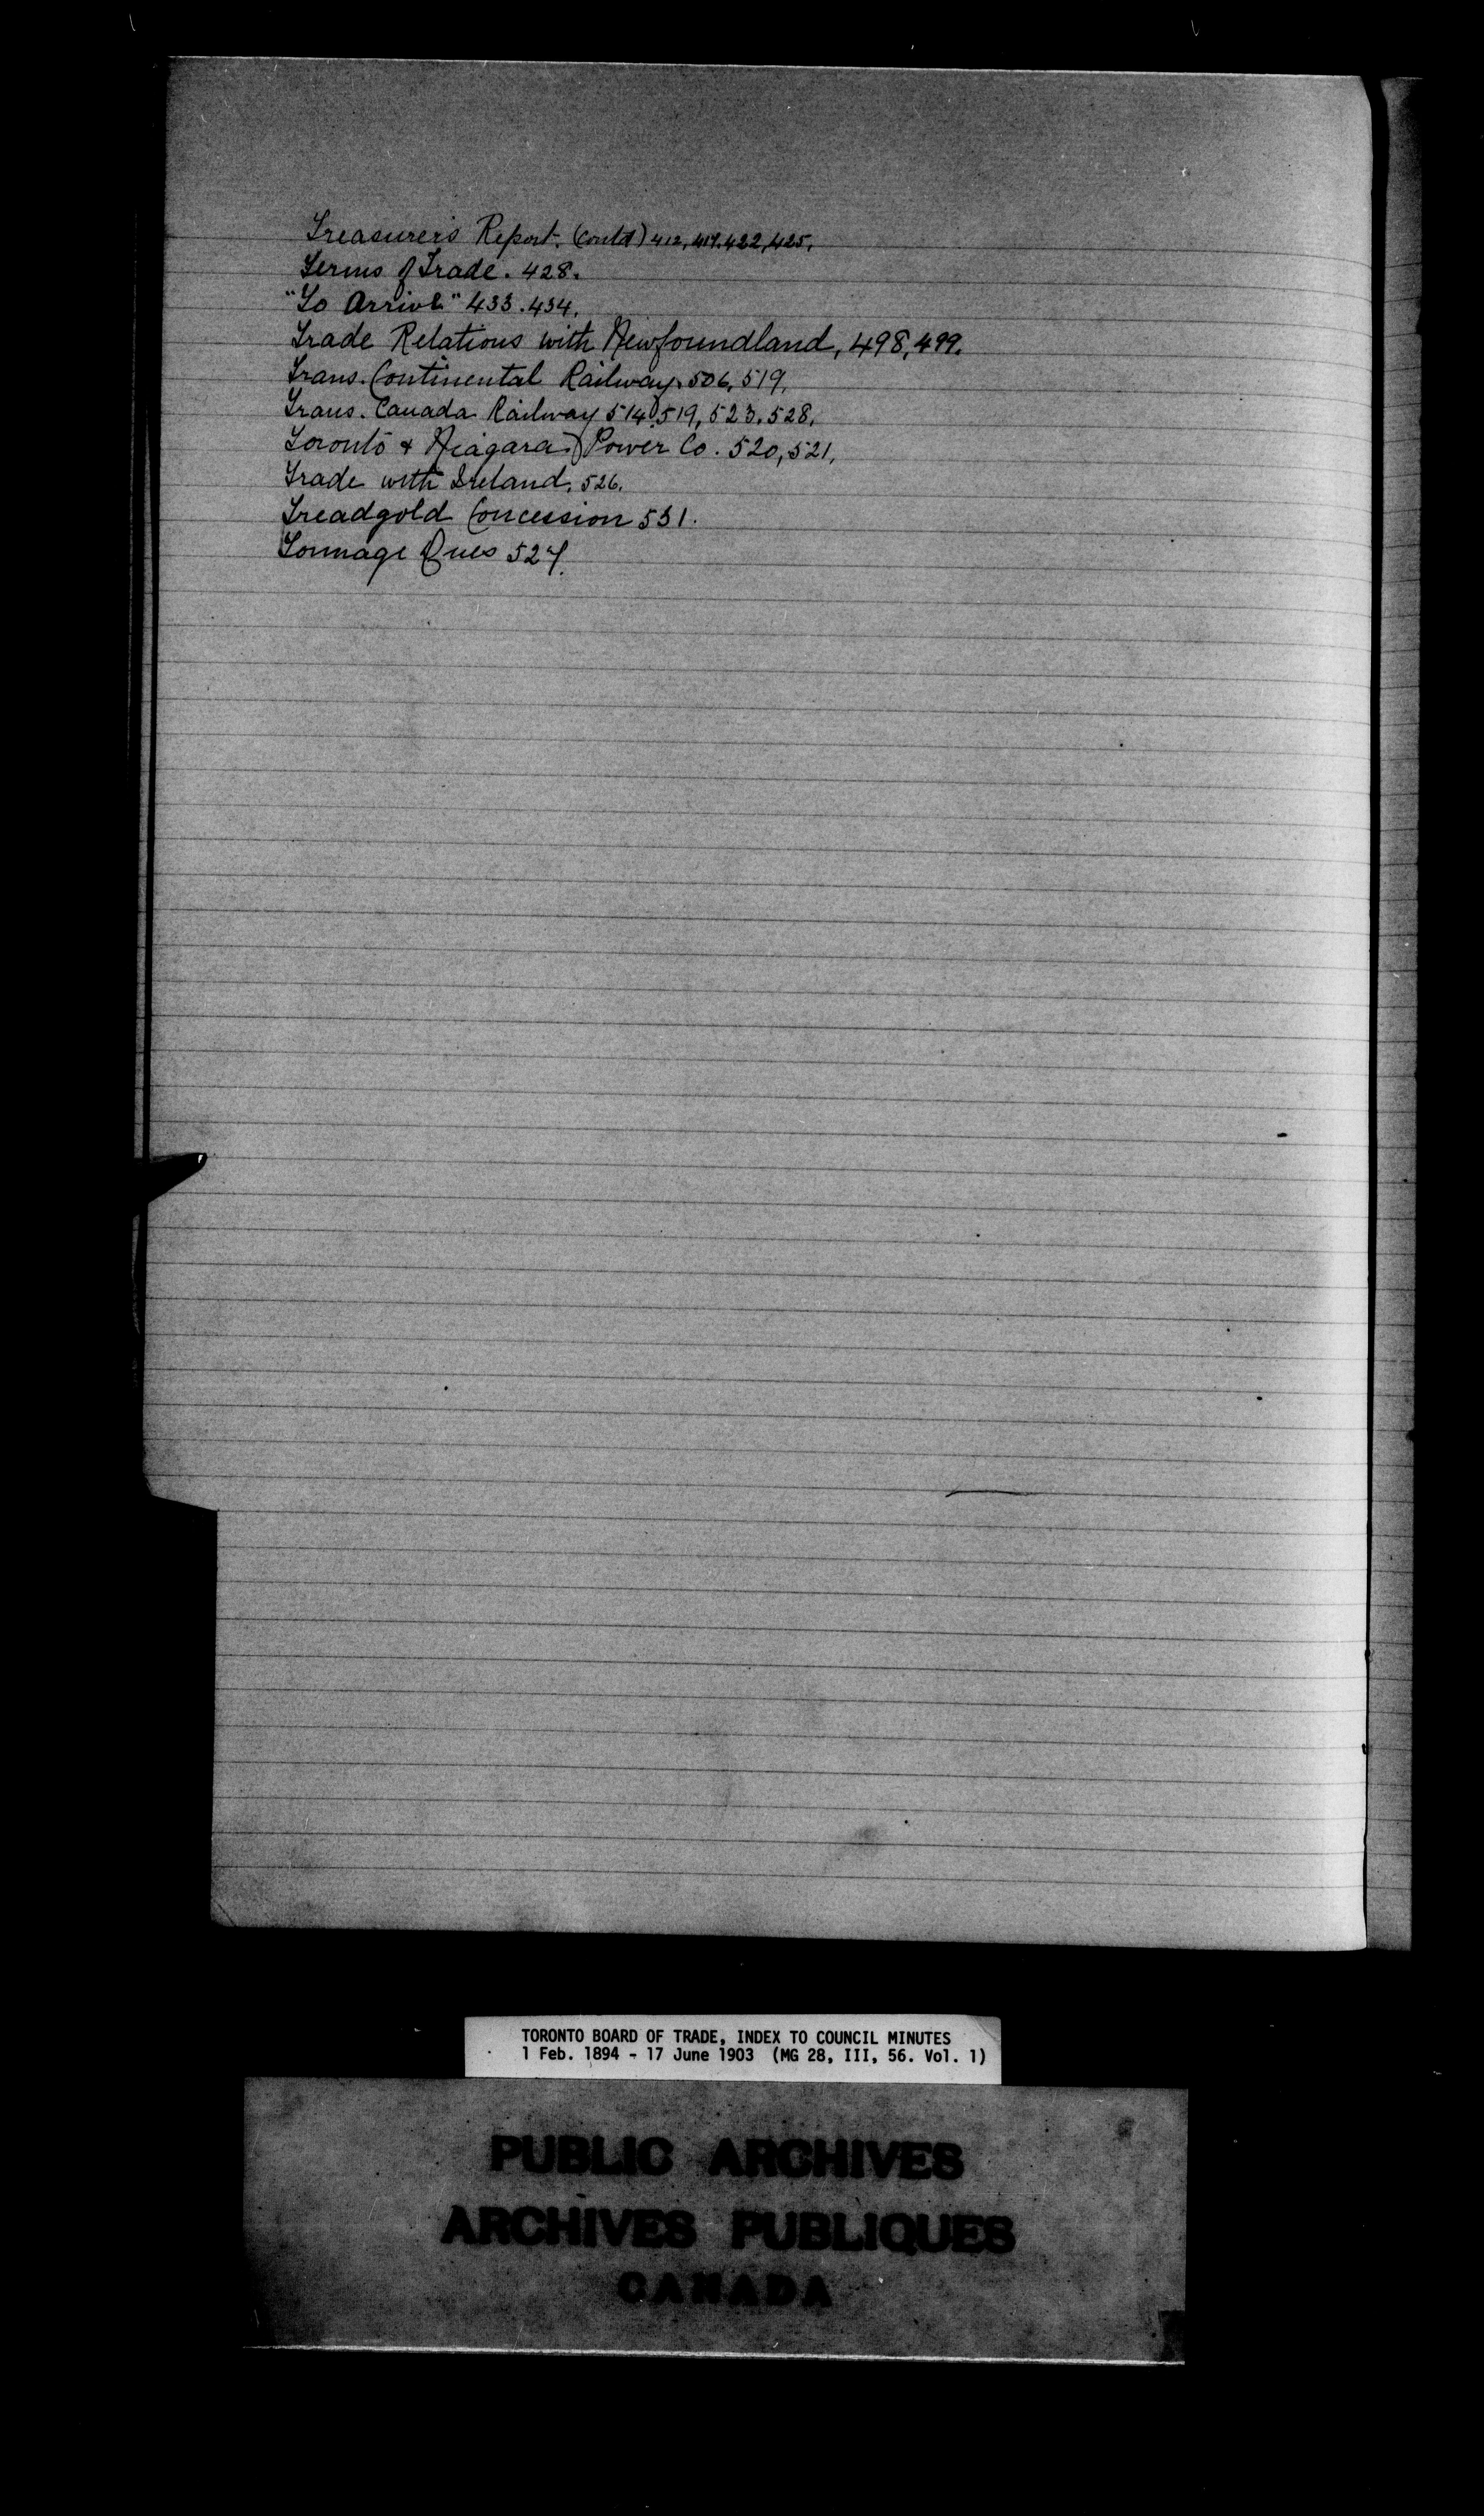 Treasurer's Report. (Contd) 412, 417, 422, 425,
Terms of Trade. 428.
"To Arrive" 433. 434.
Trade Relations with Newfoundland, 498, 499.
Trans. Continental Railway. 506, 519,
Trans. Canada Railway 514, 519, 523, 528,
Toronto & Niagara Power Co. 520, 521,
Trade with Ireland, 526.
Treadgold Concession 531.
Tonnage Dues 527.
TORONTO BOARD OF TRADE, INDEX TO COUNCIL MINUTES
1 Feb. 1894 - 17 June 1903 (MG 28, III, 56. Vol. 1)
PUBLIC ARCHIVES
ARCHIVES PUBLIQUES
CANADA